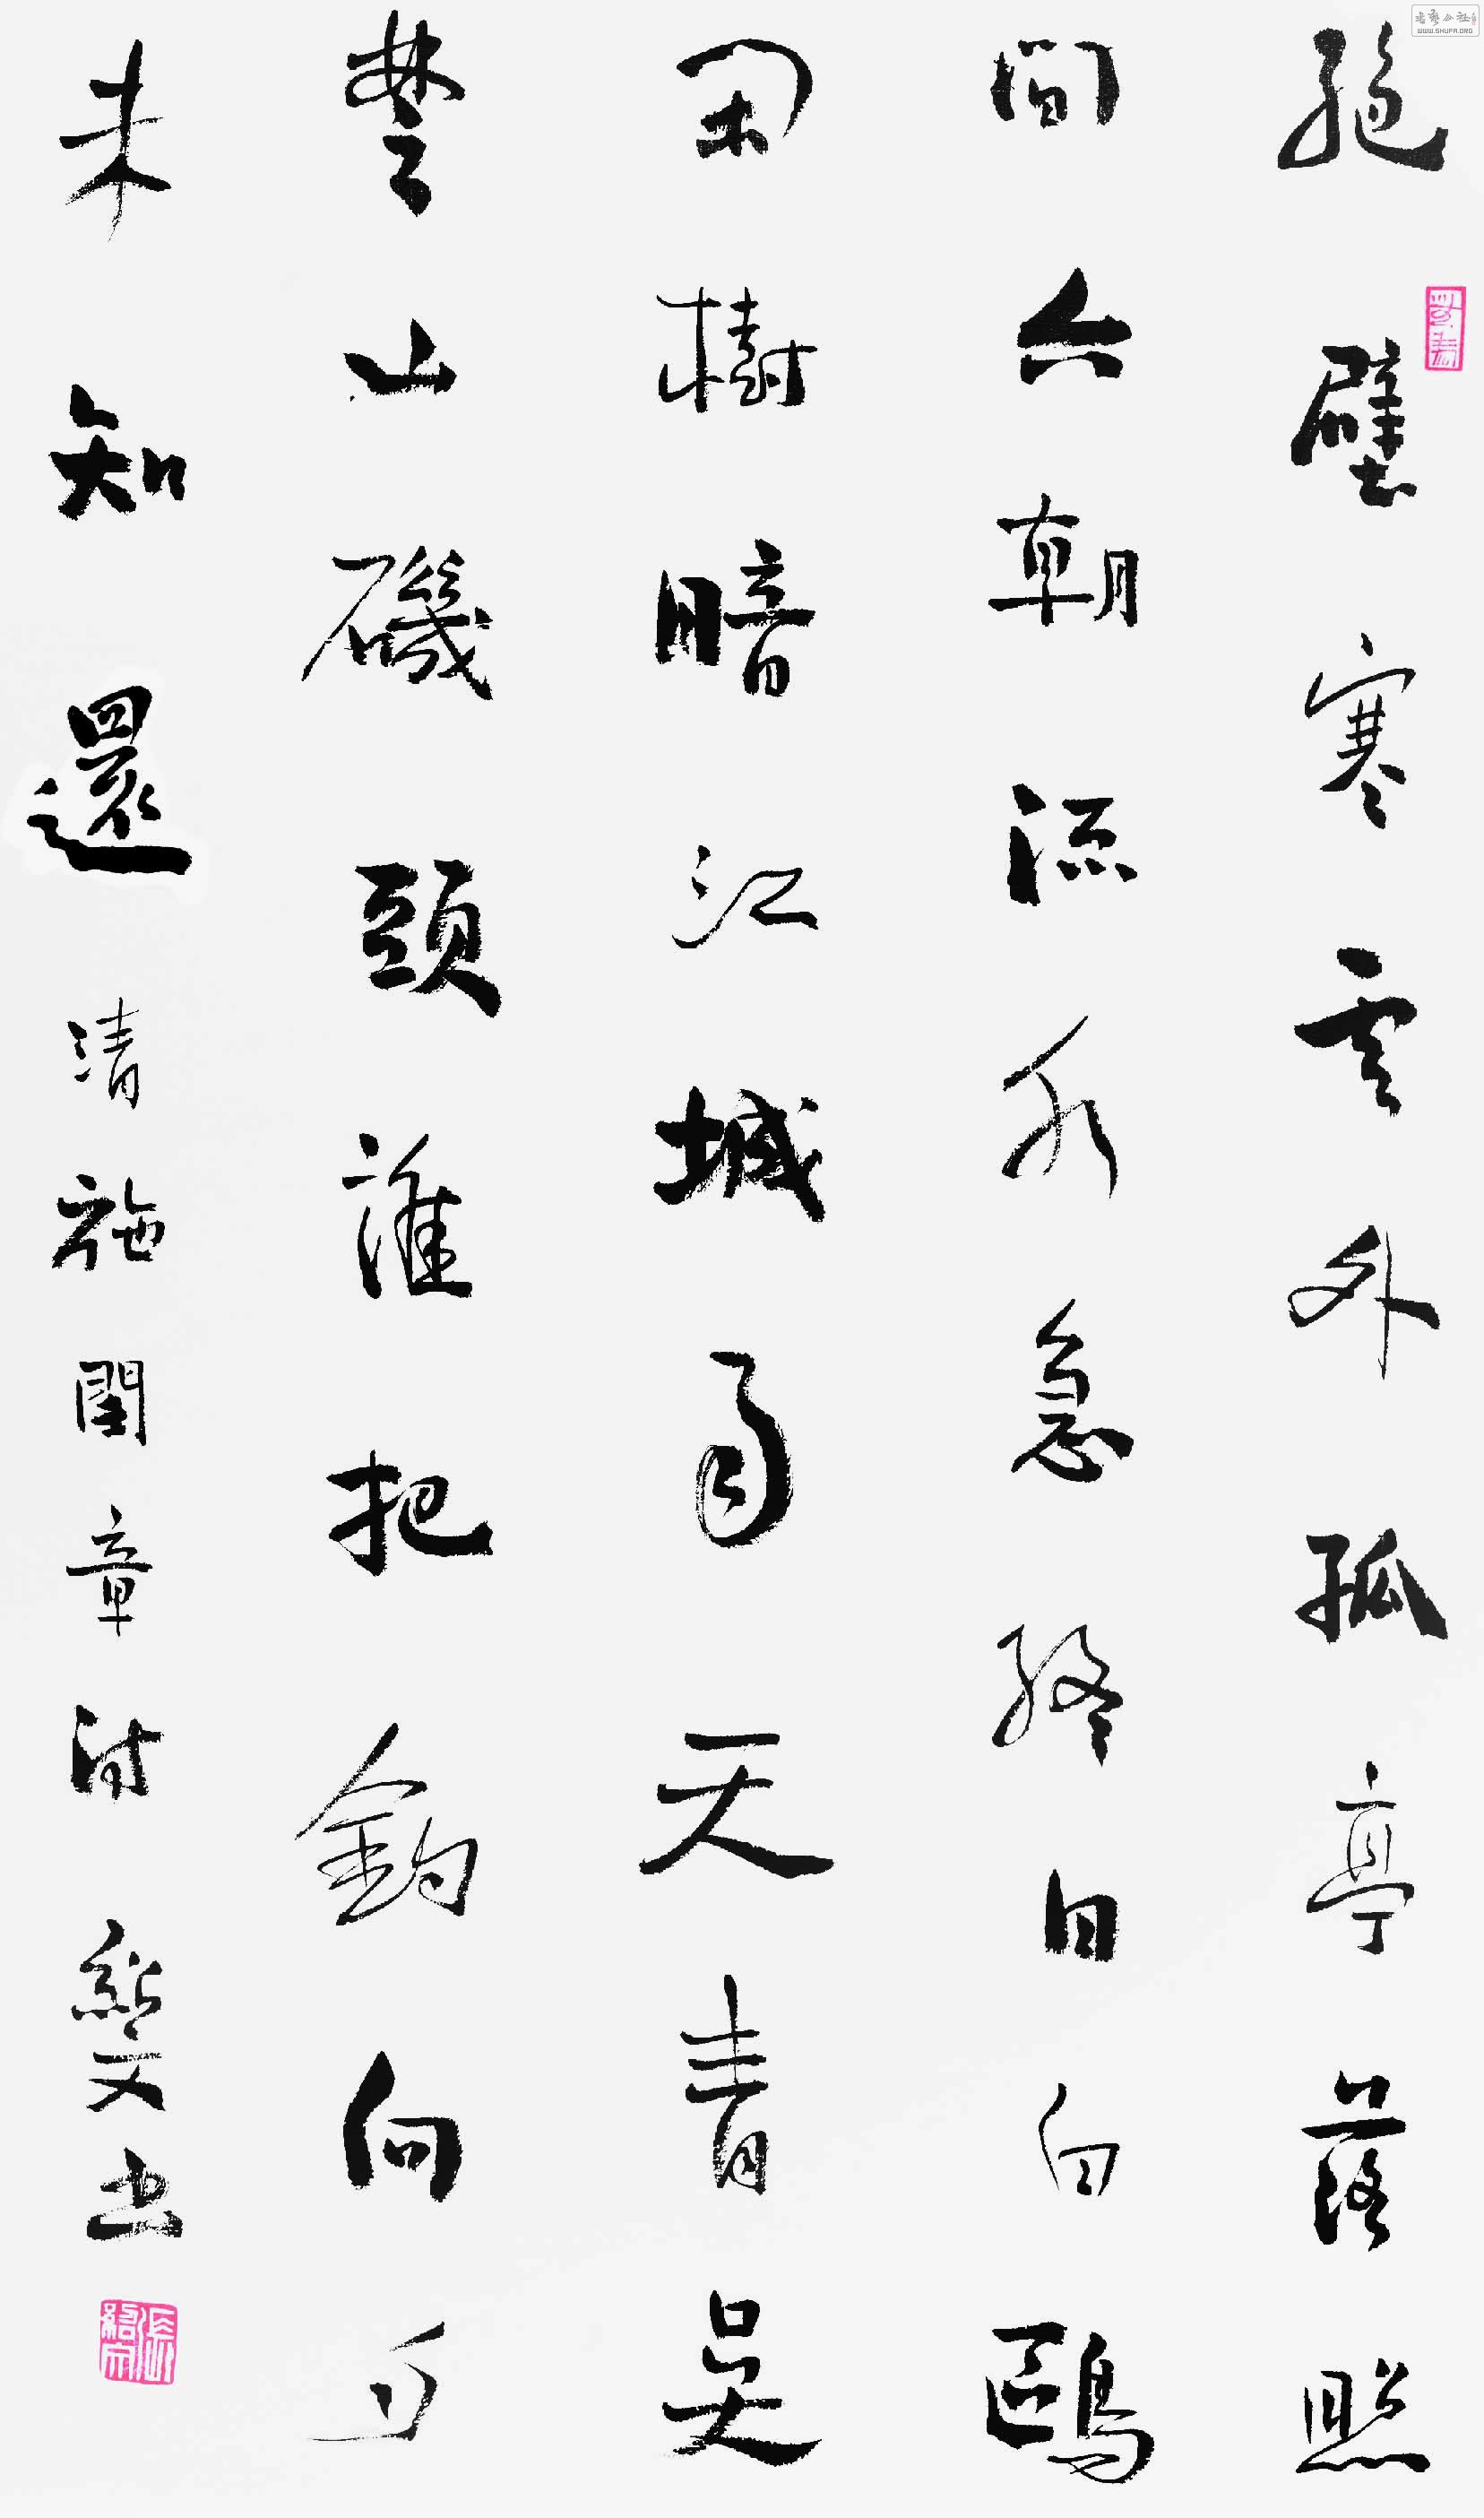 絕壁寒雲外孤亭落照
間六朝流水急終日白鷗
閑樹暗江城雨天青吳
楚山磯頭誰把釣向夕
未知還 清施閏章詩 紹文書
張紹文
书艺公社
WWW.SHUFA.ORG